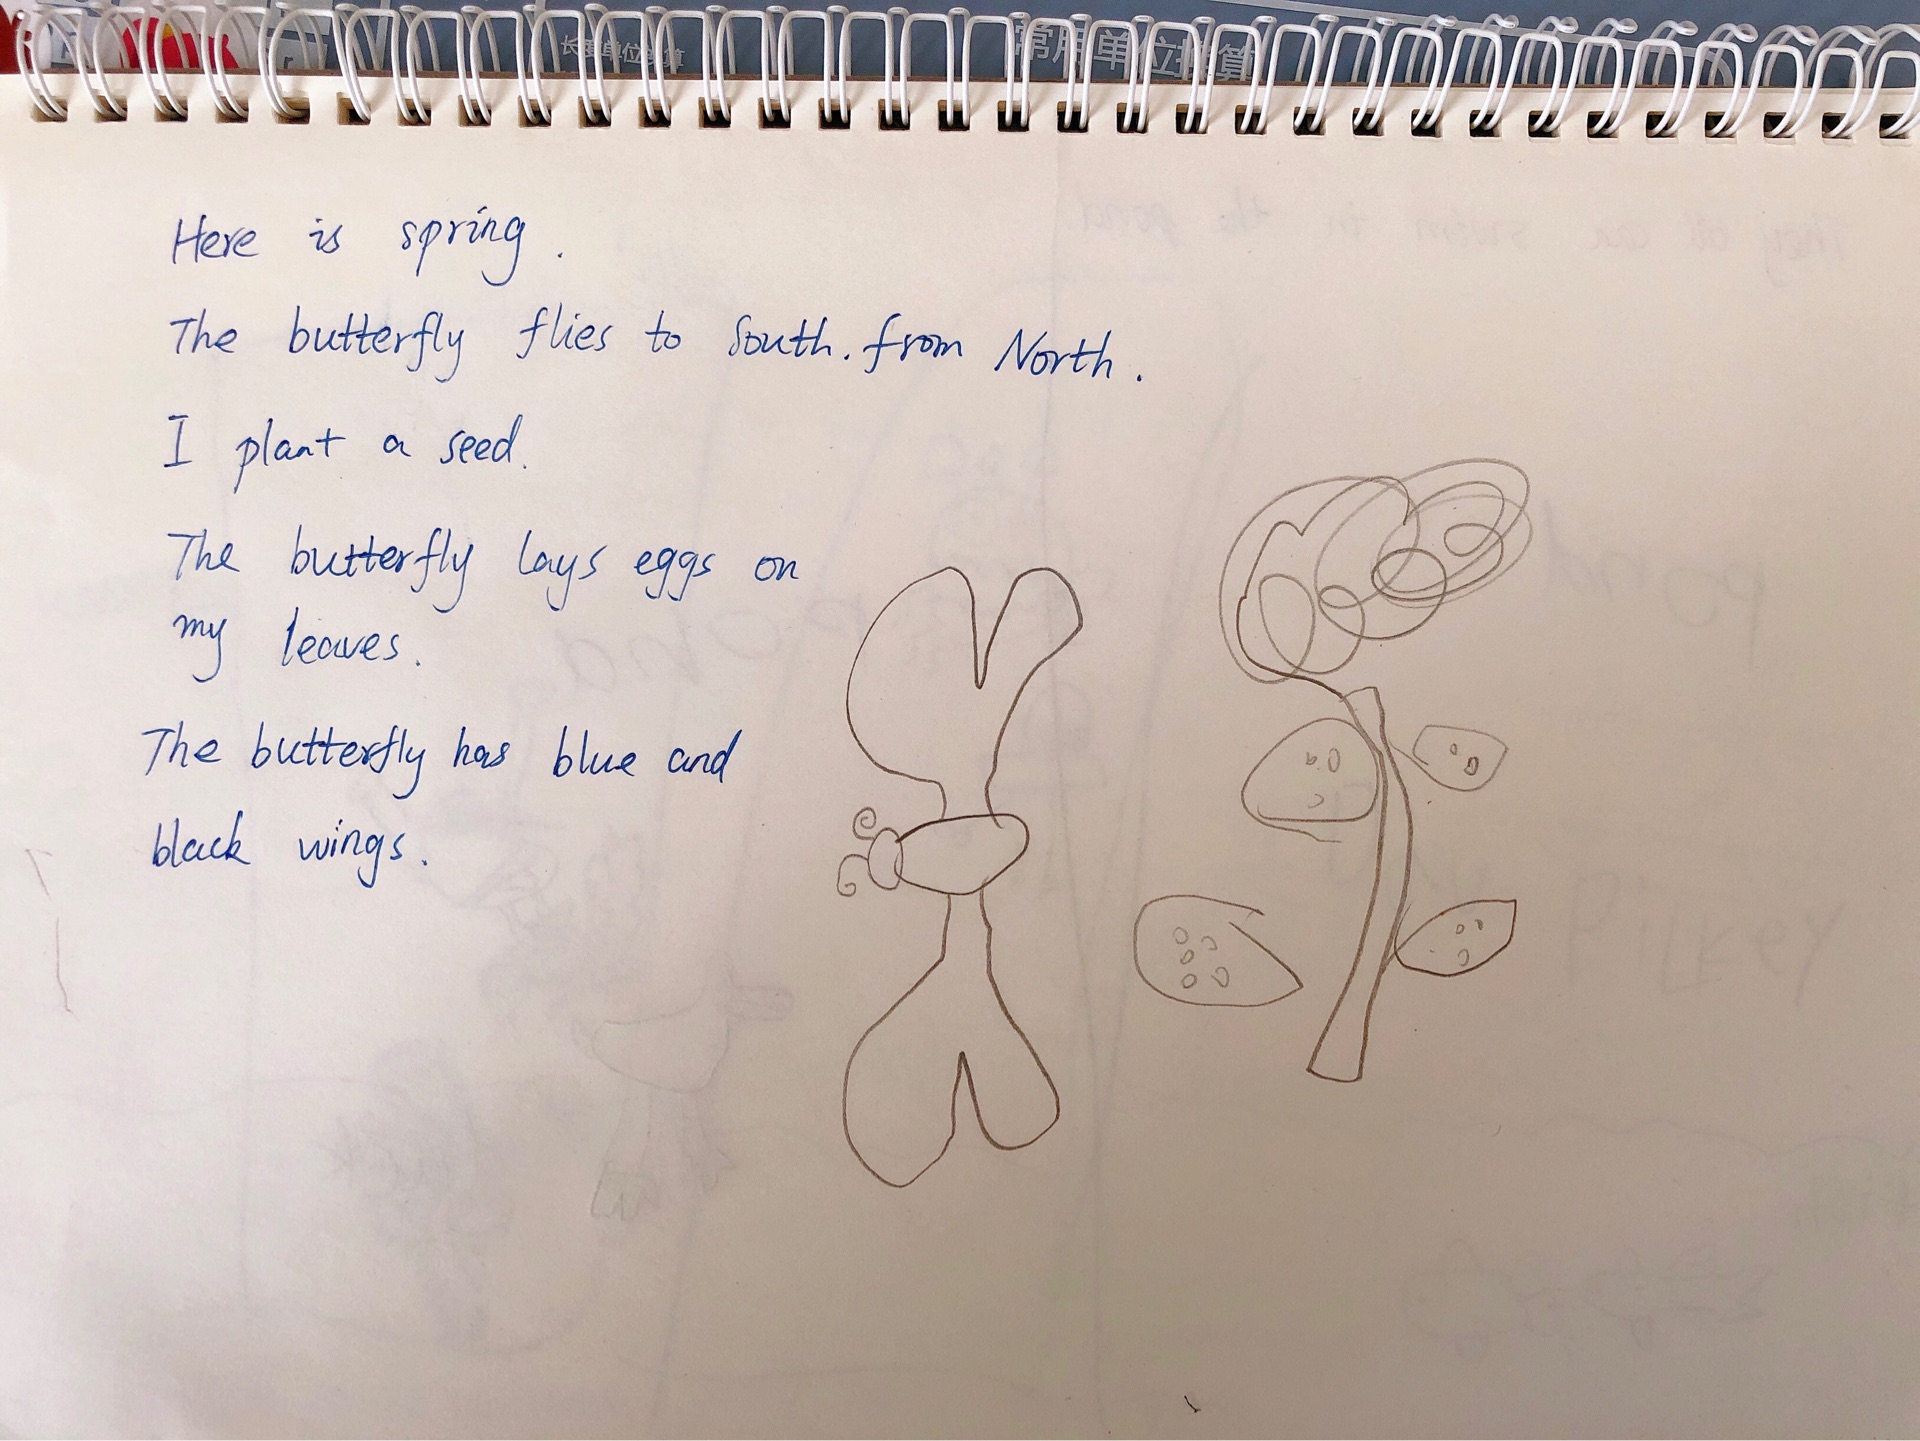 长度单位换算
常用单位换算
Here is spring.
The butterfly flies to South. from North.
I plant a seed.
The butterfly lays eggs on
my leaves.
The butterfly has blue and
black wings.